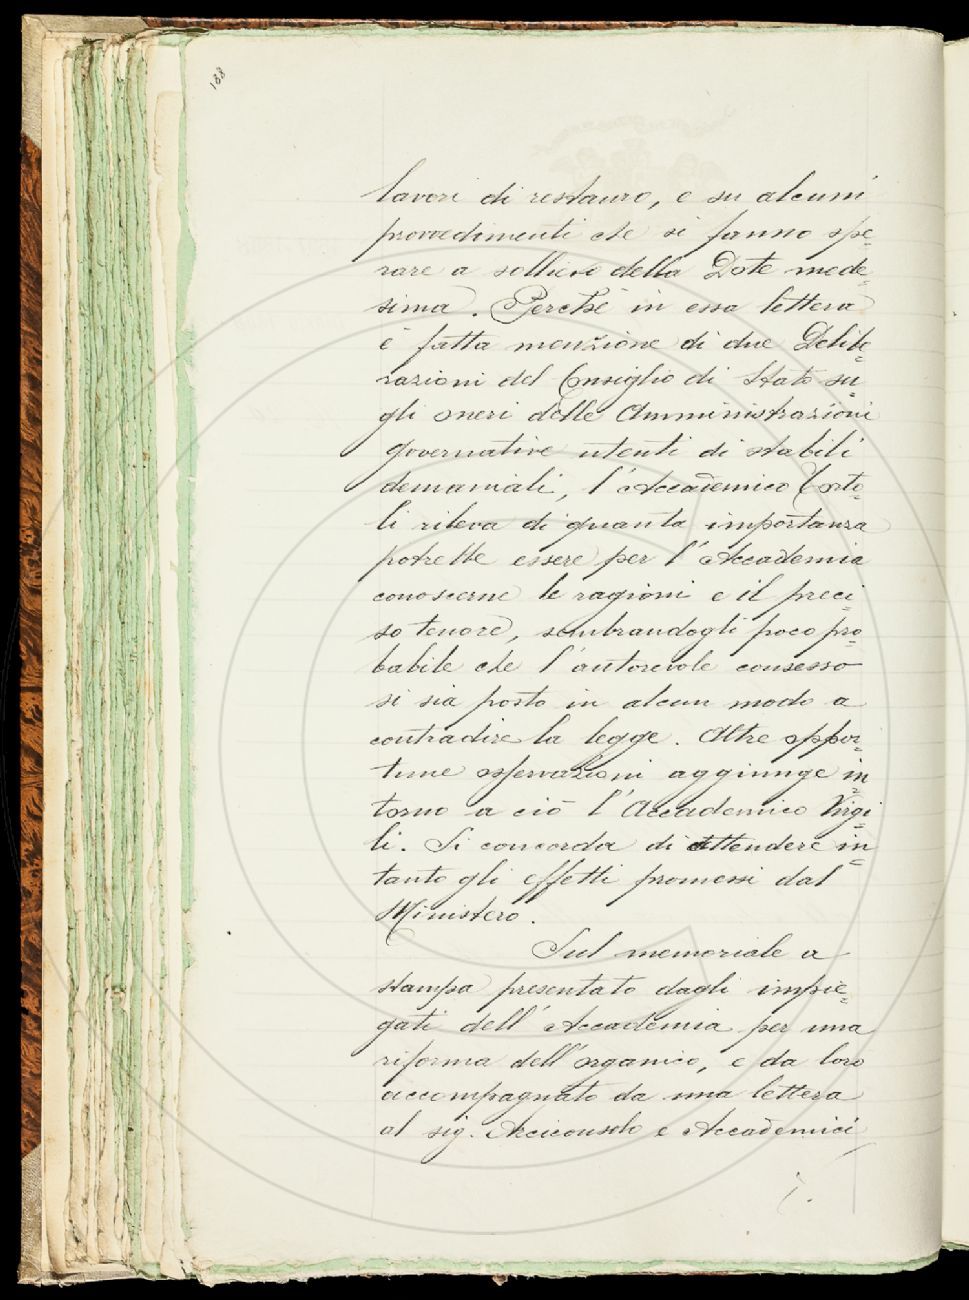 188
lavori di restauro, e su alcuni
provvedimenti che si fanno spe=
rare a sollievo della Dote mede=
sima. Perchè in essa lettera
è fatta menzione di due Delibe=
razioni del Consiglio di Stato su=
gli oneri delle Amministrazioni
governative utenti di stabili
demaniali, l'Accademico Torto=
li rileva di quanta importanza
potrebbe essere per l'Accademia
conoscerne le ragioni e il preci=
so tenore, sembrandogli poco pro=
babile che l'autorevole consesso
si sia posto in alcun modo a
contradire la legge. Altre oppor=
tune osservazioni aggiunge in=
torno a ciò l'Accademico Virgi=
li. Si concorda di attendere in=
tanto gli effetti promessi dal
Ministero.
Sul memoriale a
stampa presentato dagli impie=
gati dell'Accademia per una
riforma dell'organico, e da loro
accompagnato da una lettera
al sig. Arciconsolo e Accademici